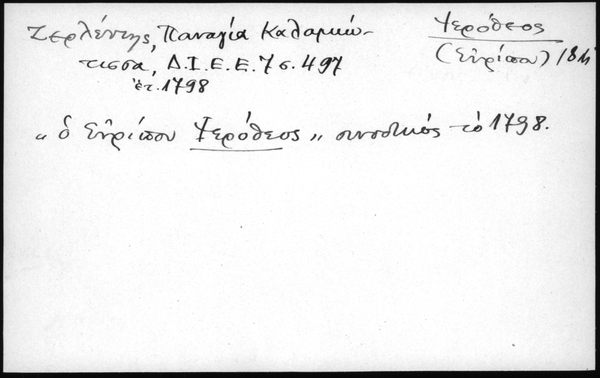 Ζερλέντης, Παναγία Καλαμιώ-
τισσα, Δ.Ι.Ε.Ε. 7 σ. 497
ἐτ. 1798
Ἱερόθεος
(Εὐρίπου)
„ ὁ Εὐρίπου Ἱερόθεος „ συνοδικός τὸ 1798.